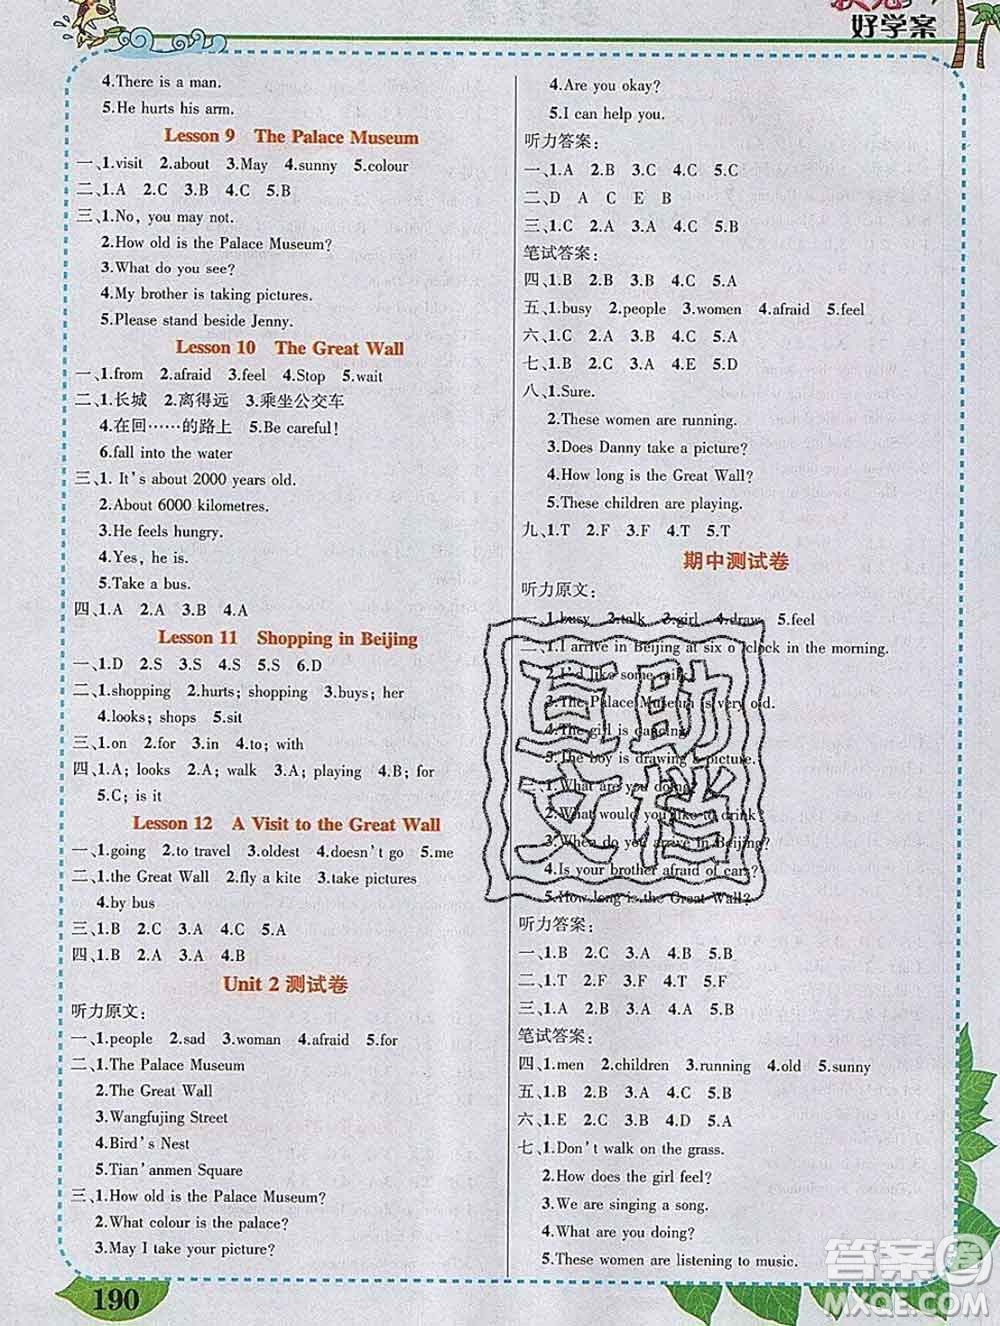 好学案
4.There is a man.
5.He hurts his arm.
Lesson 9 The Palace Museum
一、1.visit 2.about 3.May 4.sunny 5.colour
二、1.A 2.C 3.B 4.C 5.B
三、1.No, you may not.
2.How old is the Palace Museum?
3.What do you see?
4.My brother is taking pictures.
5.Please stand beside Jenny.
Lesson 10 The Great Wall
一、1.from 2.afraid 3.feel 4.Stop 5.wait
二、1.长城 2.离得远 3.乘坐公交车
4.在回……的路上 5.Be careful!
6.fall into the water
三、1.It's about 2000 years old.
2.About 6000 kilometres.
3.He feels hungry.
4.Yes, he is.
5.Take a bus.
四、1.A 2.A 3.B 4.A
Lesson 11 Shopping in Beijing
一、1.D 2.S 3.D 4.S 5.S 6.D
二、1.shopping 2.hurts; shopping 3.buys; her
4.looks; shops 5.sit
三、1.on 2.for 3.in 4.to; with
四、1.A; looks 2.A; walk 3.A; playing 4.B; for
5.C; is it
Lesson 12 A Visit to the Great Wall
一、1.going 2.to travel 3.oldest 4.doesn't go 5.me
二、1.the Great Wall 2.fly a kite 3.take pictures
4.by bus
三、1.B 2.C 3.A 4.C 5.B
四、1.B 2.A 3.A 4.B
Unit 2 测试卷
听力原文:
一、1.people 2.sad 3.woman 4.afraid 5.for
二、1.The Palace Museum
2.The Great Wall
3.Wangfujing Street
4.Bird's Nest
5.Tian'anmen Square
三、1.How old is the Palace Museum?
2.What colour is the palace?
3.May I take your picture?
190
4.Are you okay?
5.I can help you.
听力答案:
一、1.A 2.B 3.C 4.C 5.A
二、D A C E B
三、1.C 2.A 3.A 4.B 5.C
笔试答案:
四、1.B 2.B 3.B 4.C 5.A
五、1.busy 2.people 3.women 4.afraid 5.feel
六、1.C 2.A 3.B 4.C 5.A
七、1.B 2.C 3.A 4.E 5.D
八、1.Sure.
2.These women are running.
3.Does Danny take a picture?
4.How long is the Great Wall?
5.These children are playing.
九、1.T 2.F 3.F 4.T 5.T
期中测试卷
听力原文:
一、1.busy 2.talk 3.girl 4.draw 5.feel
二、1.I arrive in Beijing at six o'clock in the morning.
2.I'd like some milk.
3.The Palace Museum is very old.
4.The girl is dancing.
5.The boy is drawing a picture.
三、1.What are you doing?
2.What would you like to drink?
3.When do you arrive in Beijing?
4.Is your brother afraid of cars?
5.How long is the Great Wall?
听力答案:
一、1.B 2.C 3.A 4.B 5.B
二、1.T 2.F 3.F 4.T 5.F
三、1.C 2.B 3.A 4.B 5.A
笔试答案:
四、1.men 2.children 3.running 4.old 5.sunny
五、1.B 2.B 3.C 4.B 5.A
六、1.E 2.C 3.B 4.D 5.A
七、1.Don't walk on the grass.
2.How does the girl feel?
3.We are singing a song.
4.What are you doing?
5.These women are listening to music.
互助
文档
答案圈
MXQE.COM